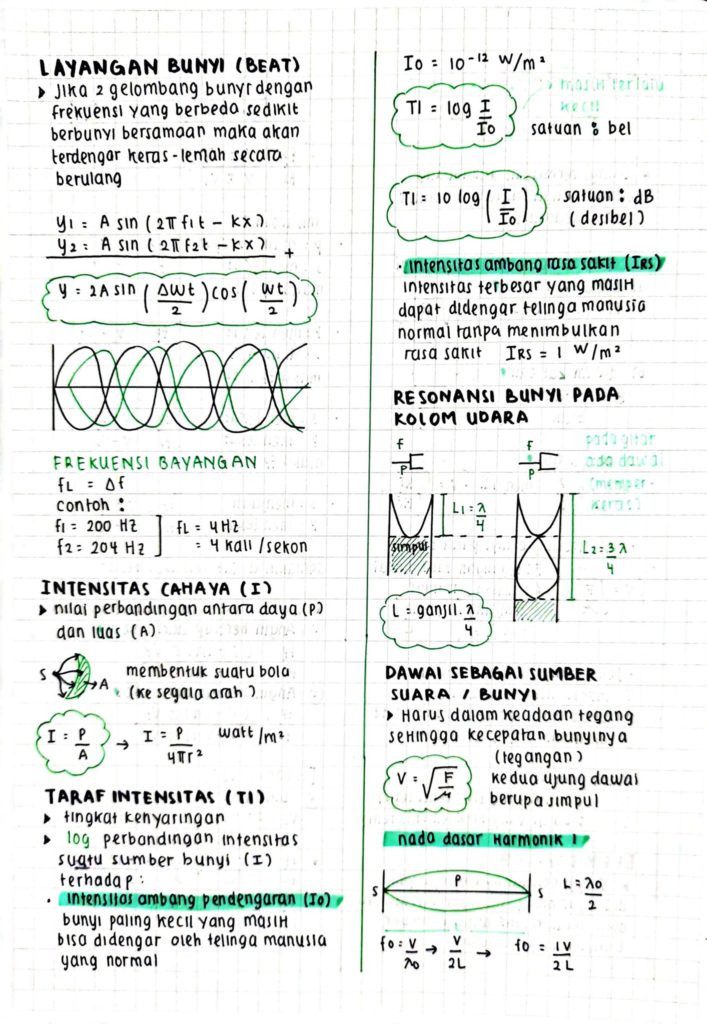 LAYANGAN BUNYI (BEAT)
▸ Jika 2 gelombang bunyi dengan
frekuensi yang berbeda sedikit
berbunyi bersamaan maka akan
terdengar keras-lemah secara
berulang
y1 = A sin (2πf1t - kx)
y2 = A sin (2πf2t - kx) +
y = 2A sin (Δwt/2) cos (wt/2)
FREKUENSI BAYANGAN
fL = Δf
contoh :
f1 = 200 Hz ] fL = 4 Hz
f2 = 204 Hz ] = 4 kali/sekon
INTENSITAS CAHAYA (I)
▸ nilai perbandingan antara daya (P)
dan luas (A)
S A membentuk suatu bola
(ke segala arah)
I = P/A → I = P/4πr² watt/m²
TARAF INTENSITAS (TI)
▸ tingkat kenyaringan
▸ log perbandingan intensitas
suatu sumber bunyi (I)
terhadap :
· Intensitas ambang pendengaran (I0)
bunyi paling kecil yang masih
bisa didengar oleh telinga manusia
yang normal
I0 = 10⁻¹² W/m²
→ masih terlalu
kecil
TI = log I/I0 satuan : bel
TI = 10 log (I/I0) satuan : dB
(desibel)
· Intensitas ambang rasa sakit (IRS)
intensitas terbesar yang masih
dapat didengar telinga manusia
normal tanpa menimbulkan
rasa sakit IRS = 1 W/m²
RESONANSI BUNYI PADA
KOLOM UDARA
f f pada gitar
P P ada dawai
(memper-
keras)
L1 = λ/4
simpul
L2 = 3λ/4
L = ganjil . λ/4
DAWAI SEBAGAI SUMBER
SUARA / BUNYI
▸ Harus dalam keadaan tegang
sehingga kecepatan bunyinya
(tegangan)
V = √F/μ kedua ujung dawai
berupa simpul
nada dasar Harmonik 1
S P S L = λ0/2
f0 = V/λ0 → V/2L → f0 = 1V/2L